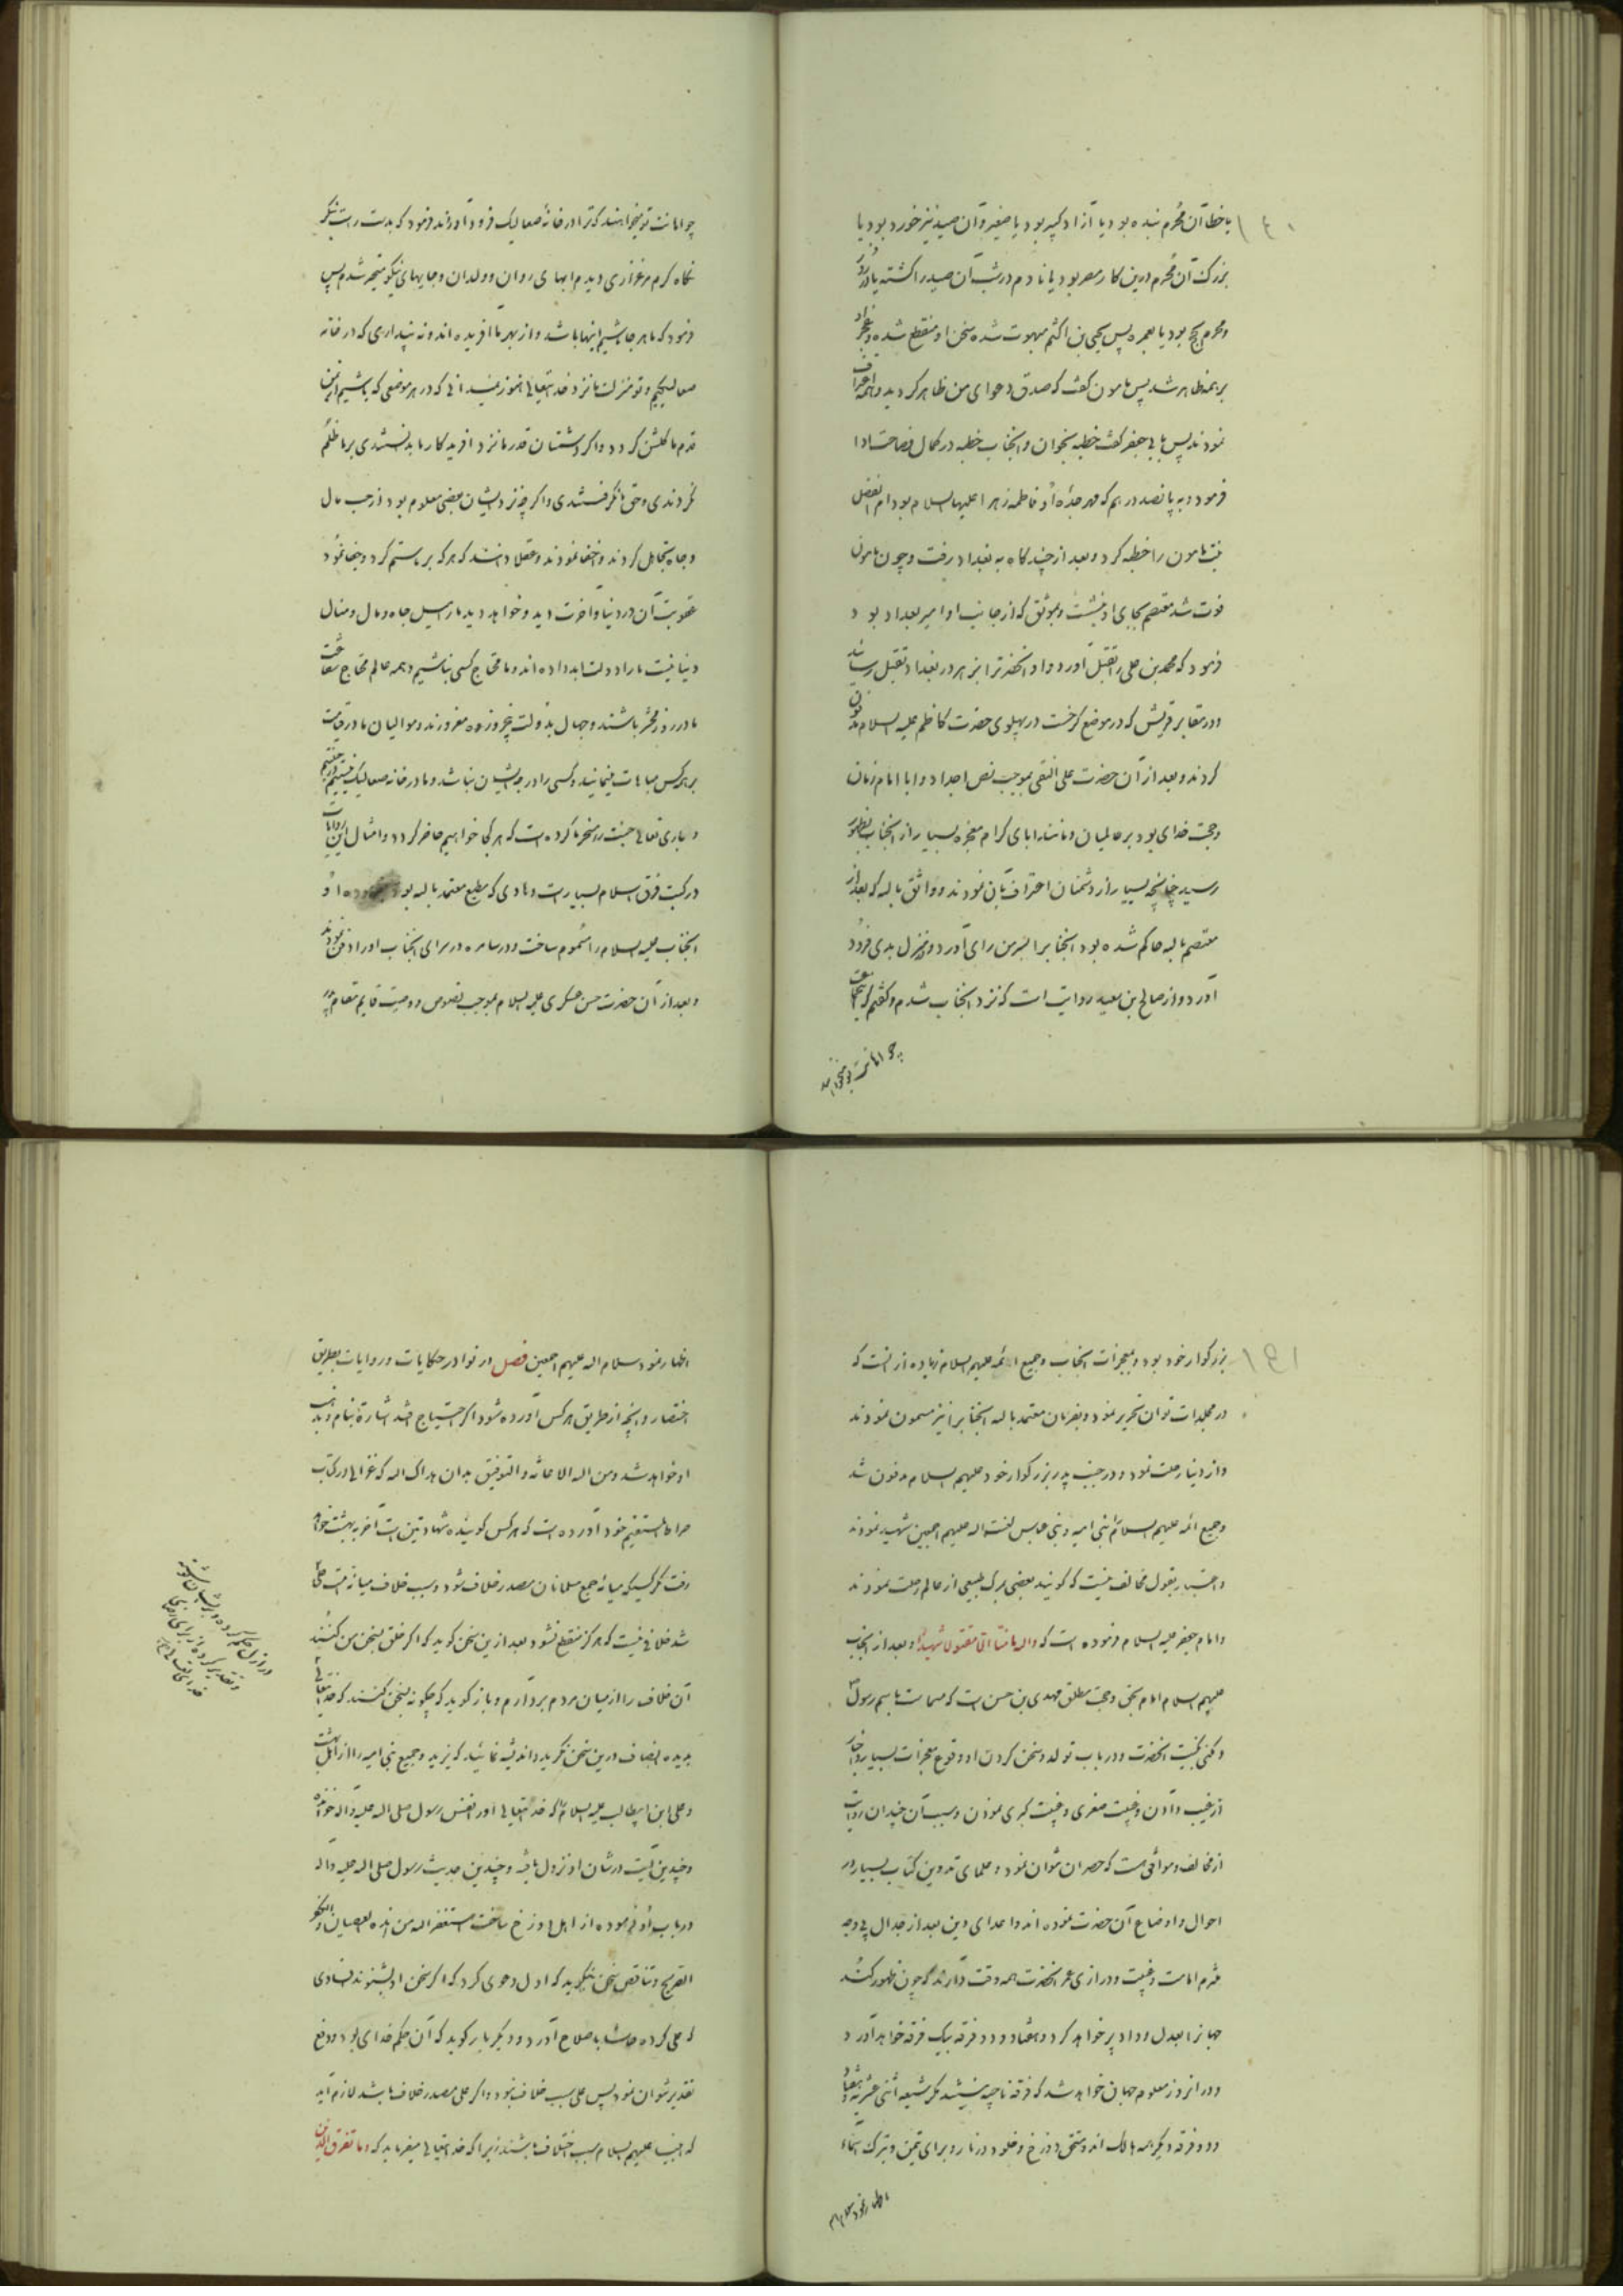 ۱۶۰
یا خطا آن محرم بنده بود یا آزاد کبیر بود یا صغیر و آن صید نیز خورد بود یا
بزرک آن محرم درین کار مصر بود یا نادم در شب آن صید را کشته یا در روز
و محرم بحج بود یا بعمره پس یحیی بن اکثم مبهوت شده سخن او منقطع شد و عجز او
بر همه ظاهر شد پس مامون کفت که صدق دعوای من ظاهر کردید و همه اعتراف
نمودند پس بابی جعفر کفت خطبه بخوان و انجناب خطبه در کمال فصاحت ادا
فرمود و به پانصد درهم که مهر جده او فاطمه زهرا علیها السلام بود ام الفضل
بنت مامون را خطبه کرد و بعد از چند کاه به بغداد رفت و چون مامون
فوت شد معتصم بجای او نشست و بوثق که از جانب او امیر بغداد بود
فرمود که محمد بن علی را بقتل آورد و او انحضرترا بزهر در بغداد بقتل رسانید
و در مقابر قریش که در موضع کرخست در پهلوی حضرت کاظم علیه السلام مدفون
کردند و بعد از آن حضرت علی النقی بموجب نص اجداد و ابا امام زمان
و حجت خدای بود بر عالمیان و مانند ابای کرام معجزه بسیار از انجناب بظهور
رسید چنانچه بسیار از دشمنان اعتراف بآن نمودند و واثق بالله که بعد از
معتصم بالله حاکم شده بود انجنابرا بسرمن رای آورد و بمنزل بدی فرود
آورد و از صالح بن سعید روایت است که نزد انجناب شدم و کفتم که اینجماعت
چو امانت تو میخواهند
چو امانت تو میخواهند که ترا در خانهٔ صعالیک فرود آوردند فرمود که بدست راست بنکر
نکاه کردم مرغزاری دیدم ابهای روان و ولدان و جایهای نیکو متحیر شدم پس
فرمود که ما هر جا باشیم اینها با ما باشد و از بهر ما افریده اند و نه پنداری که در خانه
صعالیکیم و تو منزلت ما نزد خدایتعالی هنوز نمیدانی که در هر موضعی که باشیم از یمن
قدم ما کلشن کردد و اکر دشمنان قدر ما نزد افریدکار ما بدانستندی بر ما ظلم
نکردندی و حق ما نکرفتندی و اکر چه نزد ایشان بعضی معلوم بود از حب مال
و جاه تجاهل کردند و اخفا نمودند و عقلا دانند که هر که بر ما ستم کرد و جفا نمود
عقوبت آن در دنیا و آخرت دید و خواهد دید ما را میل جاه و مال و منال
دنیا نیست ما را دولت ابد داده اند و ما محتاج کسی نباشیم و همه عالم محتاج شفاعت
ما در روز محشر باشند و جهال بدولت پنجروزه مغرورند و موالیان ما در قیامت
بر هر کس مباهات مینمایند و کسی را درجه ایشان نباشد و ما در خانه صعالیک نیستیم در جنتیم
و باری تعالی جنت را مسخر ما کرده است که هر کجا خواهیم حاضر کردد و امثال این روایات
در کتب فرق اسلام بسیار است و هادی که مطیع معتمد بالله بود او
انجناب علیه السلام را مسموم ساخت و در سامره در سرای انجناب او را دفن نمودند
و بعد از آن حضرت حسن عسکری علیه السلام بموجب نصوص و وصیت قایم مقام پدر
۱۶۱
بزرکوار خود بود و معجزات انجناب و جمیع ائمه علیهم السلام زیاده از انست که
در مجلدات توان تحریر نمود و بفرمان معتمد بالله انجنابرا نیز مسموم نمودند
و از دنیا رحلت نمود و در جنب پدر بزرکوار خود علیهم السلام مدفون شد
و جمیع ائمه علیهم السلام را بنی امیه و بنی عباس لعنت الله علیهم اجمعین شهید نمودند
و اعتبار بقول مخالف نیست که کویند بعضی بمرک طبیعی از عالم رحلت نمودند
و امام جعفر علیه السلام فرموده است که والله ما منا الا مقتول شهید و بعد از انجناب
علیهم السلام امام بحق و حجت مطلق مهدی بن حسن است که مسمات باسم رسول
و کنی بکنیت انحضرت و در باب تولد و سخن کردن او و وقوع معجزات بسیار و اخبار
از غیب دادن و غیبت صغری و غیبت کبری نمودن و سبب آن چندان روایات
از مخالف و موافق هست که حصر ان نتوان نمود و علمای تدوین کتاب بسیار در
احوال و اوضاع آن حضرت نموده اند و اعدای دین بعد از جدال بی وجه
عدم امامت و غیبت و درازی عمر انحضرت همه وقت دارند که چون ظهور کند
جهانرا بعدل و داد پر خواهد کرد و هفتاد و دو فرقه بیک فرقه خواهد آورد
و در انروز معلوم جهان خواهد شد که فرقه ناجیه نیستند مکر شیعه اثنی عشریه و هفتاد
و دو فرقه دیکر همه هالک اند و مستحق دوزخ و خلود در نار و برای تیمن و تبرک اسماء
اظهار نمود سلام
اظهار نمود سلام الله علیهم اجمعین فصل در نوادر حکایات و روایات بطریق
اختصار و انچه از طریق هر کس آورده شود اکر احتیاج افتد اشارة بنام و مذهب
او خواهد شد و من الله الاعانه و التوفیق بدان هداک الله که غزالی در کتاب
صراط المستقیم خود آورده است که هر کس کوینده شهادتین است آخر به بهشت خواهد
رفت مکر کسیکه میانه جمع مسلمانان مصدر خلاف شود و سبب خلاف میانه امت علی
شد خلافی نیست که هرکز منقطع نشود بعد ازین سخن کوید که اکر خلق سخن من کنند
آن خلاف را از میان مردم بردارم و باز کوید که چکونه سخن کنند که خدایتعالی
بدیده انصاف درین سخن نکرید و اندیشه نمائید که یزید و جمیع بنی امیه را از اهل بهشت
و علی ابن ابیطالب علیه السلام را که خدایتعالی او را نفس رسول صلی الله علیه و اله خوانده
و چندین آیت در شان او نزول یافته و چندین حدیث رسول صلی الله علیه و اله
در باب او فرموده از اهل دوزخ ساخت استغفر الله من هذه العصیان و الکفر
الصریح و تناقض سخن بنکرید که اول دعوی کرد که اکر سخن او بشنوند فسادی
که علی کرده حاشا باصلاح آورد و دیکر بار کوید که آن حکم خدای بود و دفع
تقدیر نتوان نمود پس علی سبب خلاف نبود و اکر علی مصدر خلاف باشد لازم آید
که انبیا علیهم السلام سبب اختلاف باشند زیرا که خدایتعالی میفرماید که وما تفرق الذین